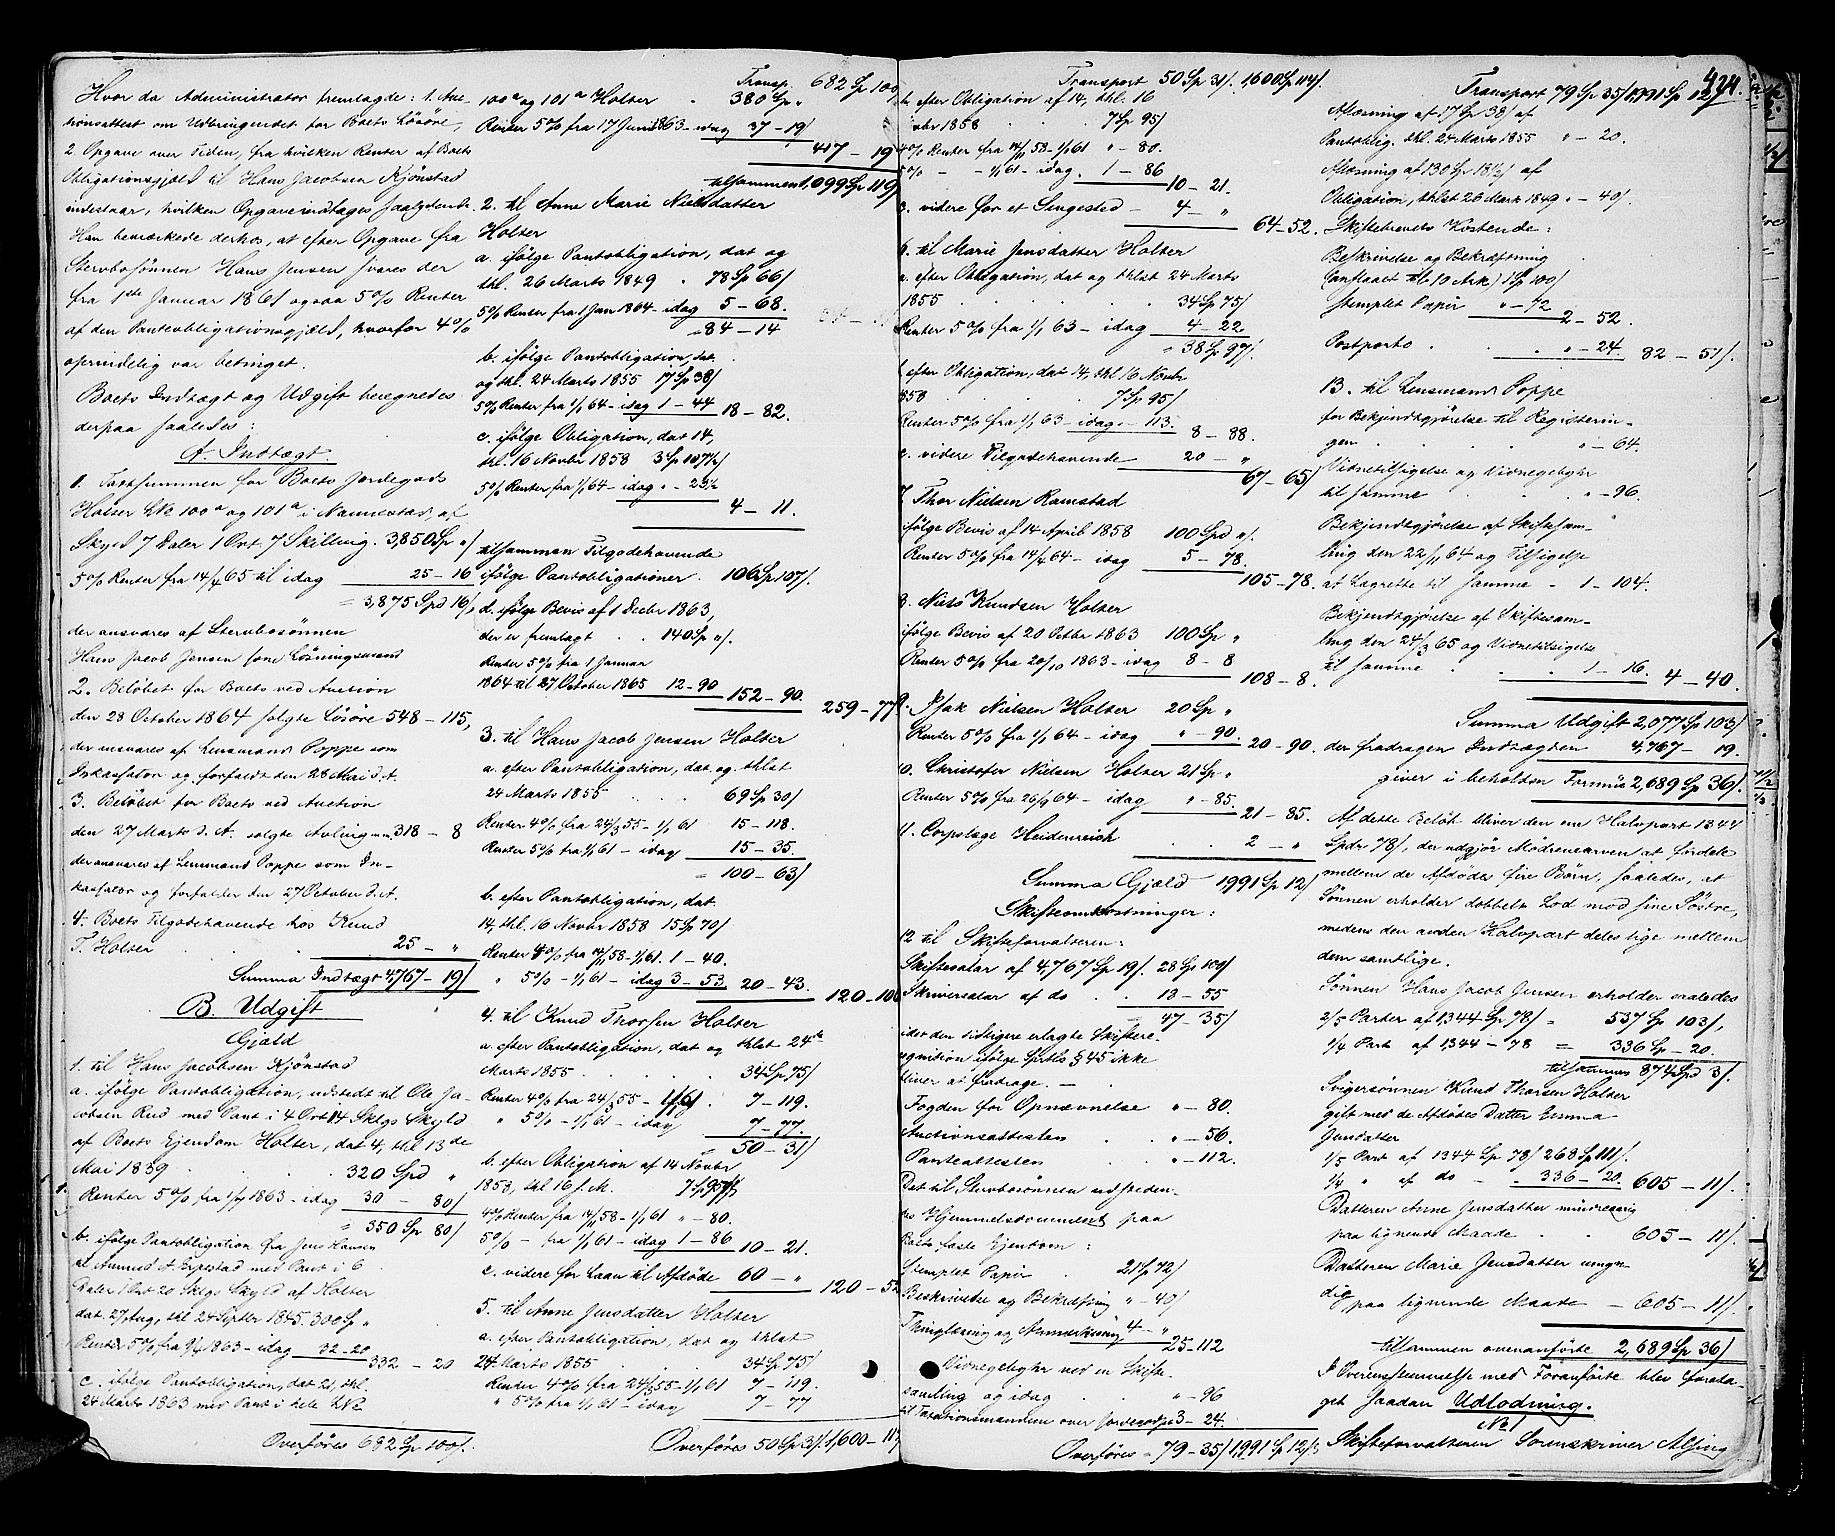 Hvor da Administrator fremlagde: 1. Auc-
tionsattest om Udbringendet for Boets Løsøre,
2 Opgave over Tiden, fra hvilken Renter af Boets
Obligationsgjæld til Hans Jacobsen Kjønstad
indestaar, hvilken Opgave indtages saalydende.
Han bemærkede derhos, at efter Opgave fra
Stervbosønnen Hans Jensen svares der
fra 1ste Januar 1861 ogsaa 5 % Renter
af den Panteobligationsgjæld, hvorfor 4 %
oprindelig var betinget.
Boets Indtægt og Udgift beregnedes
derpaa saaledes:
A. Indtægt
1. Taxtsummen for Boets Jordegods
Holter LNo 100a og 101a i Nannestad, af
Skyld 7 Daler 1 Ort 7 Skilling. 3,850 Sp "/
5 % Renter fra 14/4 65 til idag 25 - 16
= 3,875 Spd 16/
der ansvares af Stervbosønnen
Hans Jacob Jensen som Løsningsmand
2. Beløbet for Boets ved Auction
den 28 October 1864 solgte Løsøre 548 - 115,
der ansvares af Lensmand Poppe som
Inkassator og forfaldt den 28 Mai d. A.
3. Beløbet for Boets ved Auction
den 27 Marts d. A. solgte Avling m.m. 318 - 8
der ansvares af Lensmand Poppe som In-
kassator og forfalder den 27 October d. A.
4. Boets Tilgodehavende hos Knud
T. Holter 25 - "
Summa Indtægt 4767 - 19/
B. Udgift
Gjæld
1. til Hans Jacobsen Kjønstad
a. ifølge Pantobligation, udstedt til Ole Ja-
cobsen Rud med Pant i 4 Ort 14 Sklgs Skyld
af Boets Ejendom Holter, dat. 4, thl 13de
Mai 1839 320 Spd "
Renter 5 % fra 1/7 1863 - idag 30 - 80/
= 350 Sp 80/
b. ifølge Pantobligation fra Jens Hansen
til Amund A. med Pant i 6
Daler 1 Ort 20 Sklgs Skyld af Holter
dat. 27 Aug, thl 24 Septbr 1845. 300 Sp "
Renter 5 % fra 1863 - idag 32 - 20
332 - 20
c. ifølge Pantobligation, dat 21, thl.
24 Marts 1863 med Pant i hele LNo
Overføres 682 Sp 100/.
Transp. 682 Sp 100/
100a og 101a Holter 380 Sp "
Renter 5 % fra 17 Juni 1863 - idag 37 - 19/
417 - 19
tilsammen 1,099 Sp 119/
2. til Anne Marie Nielsdatter
Holter
a. ifølge Pantobligation, dat og
thl. 26 Marts 1849 78 Sp 66/
5 % Renter fra 1 Jan 1864 - idag 5 - 68.
= 84 - 14
b. ifølge Pantobligation, dat.
og thl. 24 Marts 1855 17 Sp 38/
5 % Renter fra 1/1 64 - idag 1 - 44 18 - 82.
c. ifølge Obligation, dat 14,
thl. 16 Novbr 1858 3 Sp 107½/
5 % Renter fra 1/1 64 - idag " - 23½
4 - 11.
tilsammen Tilgodehavende
ifølge Pantobligationer. 106 Sp 107/.
d. ifølge Bevis af 1 Decbr 1863,
der er fremlagt 140 Sp "/.
Renter 5 % fra 1 Januar
1864 til 27 October 1865 12 - 90 152 - 90.
259 - 77
3. til Hans Jacob Jensen Holter
a. efter Pantobligation, dat. og thlst
24 Marts 1855 69 Sp 30/
Renter 4 % fra 24/3 55 - 1/1 61 15 - 118.
Renter 5 % fra 1/1 61 - idag 15 - 35.
= 100 - 63/
b. efter Pantobligation, dat.
14, thl. 16 Novbr 1858 15 Sp 70/
Renter 4 % fra 14/11 58 - 1/1 61. 1 - 40.
" 5 % - 1/1 61 - idag 3 - 53. 20 - 43.
120 - 106
4. til Knud Thorsen Holter
a. efter Pantobligation, dat og thlst 24de
Marts 1855 34 Sp 75/
Renter 4 % fra 24/3 55 - 1/1 61. 7 - 119.
" 5 % - 1/1 61 - idag 7 - 77.
50 - 31/
b. efter Obligation af 14 Novbr
1858, thl 16 s. M. 7 Sp 95/
4 % Renter fra 14/11 58 - 1/1 61 " - 80.
5 % - fra 1/1 61 - idag 1 - 86
10 - 21.
c. videre for Laan til Afdøde 60 - "
120 - 52
5. til Anne Jensdatter Holter
a. efter Pantobligation, dat og thlst
24 Marts 1855 34 Sp 75/
Renter 4 % fra 24/3 55 - 1/1 61 7 - 119.
" 5 % fra 1/1 61 - idag 7 - 77
Overføres 50 Sp 31/. 1,600 - 114
Transport 50 Sp 31/. 1,600 Sp 114/.
b. efter Obligation af 14, thl. 16
Novbr 1858 7 Sp 95/
4 % Renter fra 14/11 58 - 1/1 61 " - 80.
5 % - - 1/1 61 - idag. 1 - 86
10 - 21.
c. videre for et Sengested - 4 - "
64 - 52.
6. til Marie Jensdatter Holter
a. efter Obligation, dat og thlst 24 Marts
1855 34 Sp 75/
Renter 5 % fra 1/1 63 - idag 4 - 22
" 38 Sp 97/.
b. efter Obligation, dat 14, thl 16 Novbr
1858 7 Sp 95/
Renter 5 % fra 1/1 63 - idag " - 113.
8 - 88.
c. videre Tilgodehavende 20 - "
67 - 65/
7. Thor Nielsen Ramstad
ifølge Bevis af 14 April 1858 100 Spd "/.
Renter 5 % fra 14/4 64 - idag 5 - 78.
105 - 78.
8. Niels Knudsen Holter
ifølge Bevis af 20 Octbr 1863 100 Sp "
Renter 5 % fra 20/10 1863 - idag 8 - 8
108 - 8.
9. Isak Nielsen Holter 20 Sp "
Renter 5 % fra 1/1 64 - idag " - 90.
20 - 90.
10. Christofer Nielsen Holter 21 Sp "
Renter 5 % fra 26/9 64 - idag " - 85.
21 - 85.
11. Corpslæge Heidenreich 2 - "
Summa Gjæld 1991 Sp 12/
Skifteomkostninger:
12 til Skifteforvalteren:
Skiftesalar af 4,767 Sp 19/. 28 Sp 100/
Skriversalar af do 18 - 55
= 47 - 35/
idet den tidligere erlagte Skiftere-
cognition ifølge Sprtls § 45 ikke
bliver at fradrage. -
Fogden for Opnævnelse " - 80.
Auctionsattesten " - 56.
Panteattesten " - 112.
Det til Stervbosønnen udsteden-
des Hjemmelsdocument paa
Boets faste Ejendom:
Stemplet Papir 21 Sp 72/
Beskrivelse og Bekræftning " - 40/
Thinglæsning og Anmærkning 4 - "
25 - 112
Vidnegebyhr ved en Skifte-
samling og idag " - 96
til Taxationsmændene over Jordegodset 3 - 24.
Overføres = 79 - 35/ 1,991 Sp 12/
424.
Transport 79 Sp 35/ 1,991 Sp 12/
Aflæsning af 17 Sp 38/ af
Pantoblig. thl. 24 Marts 1855 " - 20.
Aflæsning af 130 Sp 18½/ af
Obligation, thlst 26 Marts 1849 " - 40/.
Skiftebrevets Kostende:
Beskrivelse og Bekræftning
(anslaaet til 10 Ark) 1 Sp 100/
stemplet Papir " - 72
2 - 52.
Postporto " - 24.
82 - 51/.
13. til Lensmand Poppe
for Bekjendtgjørelse til Registerin-
gen " - 64.
Vidnetilsigelse og Vidnegebyhr
til samme " - 96.
Bekjendtgjørelse af Skiftesam-
ling den 22/11 64 og Tilsigelse
at Lagrette til samme 1 - 104.
Bekjendtgjørelse af Skiftesam-
ling den 24/3 65 og Vidnetilsigelse
til samme 1 - 16.
4 - 40.
Summa Udgift 2,077 Sp 103/
der fradragen Indtægten 4,767 - 19.
giver i beholden Formue 2,689 Sp 36/.
Af dette Beløb bliver den ene Halvpart 1344
Spdr 78/, der udgjør Mødrenearven at fordele
mellem de Afdødes fire Børn, saaledes, at
Sønnen erholder dobbelt Lod mod sine Søstre,
medens den anden Halvpart deles lige mellem
dem samtlige.
Sønnen Hans Jacob Jensen erholder saaledes
2/5 Parter af 1344 Sp 78/ = 537 Sp 103/,
1/4 Part af 1344 - 78 = 336 Sp - 20.
tilsammen 874 Spd 3/.
Svigersønnen Knud Thorsen Holter
gift med de Afdødes Datter Emma
Jensdatter
1/5 Part af 1344 Sp 78/ 268 Sp 111/.
1/4 " af do - 336 - 20.
605 - 11/.
Datteren Anne Jensdatter mindreaarig
paa lignende Maade 605 - 11/.
Datteren Marie Jensdatter umyn-
dig
paa lignende Maade - 605 - 11/.
tilsammen ovenanførte 2,689 Sp 36/
I Overensstemmelse med Foranførte blev foreta-
get saadan Udlodning.
No 1
Skifteforvalteren Sorenskriver Alsing